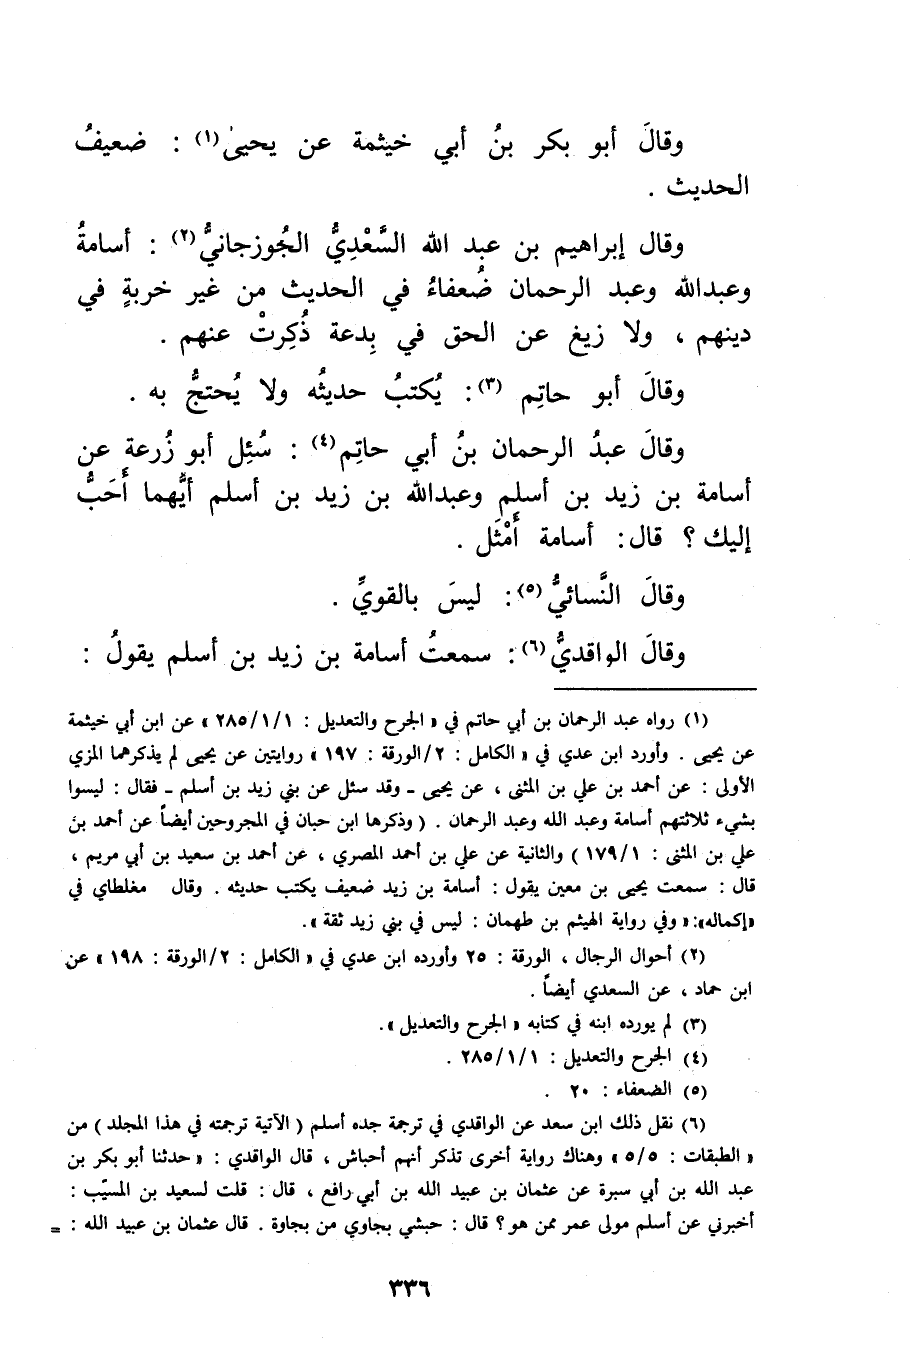 وقالَ أبو بكر بنُ أبي خيثمة عن يحيىٰ(١) : ضعيفُ
الحديث .
وقال إبراهيم بن عبد الله السَّعْدِيُّ الجُوزجانيُّ(٢) : أسامةُ
وعبدالله وعبد الرحمان ضُعفاءُ في الحديث من غير خربةٍ في
دينهم ، ولا زيغ عن الحق في بِدعة ذُكِرتْ عنهم .
وقالَ أبو حاتِم (٣): يُكتبُ حديثُه ولا يُحتجُّ به .
وقالَ عبدُ الرحمان بنُ أبي حاتِم(٤) : سُئِل أبو زُرعة عن
أسامة بن زيد بن أسلم وعبدالله بن زيد بن أسلم أيُّهما أَحَبُّ
إليك ؟ قال: أسامة أَمْثَل .
وقالَ النَّسائيُّ(٥): ليسَ بالقويِّ .
وقالَ الواقديُّ(٦): سمعتُ أسامة بن زيد بن أسلم يقولُ :
(١) رواه عبد الرحمان بن أبي حاتم في « الجرح والتعديل : ٢٨٥/١/١ » عن ابن أبي خيثمة
عن يحيى . وأورد ابن عدي في « الكامل : ٢/الورقة : ١٩٧ » روايتين عن يحيى لم يذكرهما المزي
الأولى : عن أحمد بن علي بن المثنى ، عن يحيى ـ وقد سئل عن بني زيد بن أسلم ـ فقال : ليسوا
بشيء ثلاثتهم أسامة وعبد الله وعبد الرحمان . ( وذكرها ابن حبان في المجروحين أيضاً عن أحمد بن
علي بن المثنى : ١٧٩/١ ) والثانية عن علي بن أحمد المصري ، عن أحمد بن سعيد بن أبي مريم ،
قال : سمعت يحيى بن معين يقول : أسامة بن زيد ضعيف يكتب حديثه . وقال مغلطاي في
«إكماله»: « وفي رواية الهيثم بن طهمان : ليس في بني زيد ثقة ».
(٢) أحوال الرجال ، الورقة : ٢٥ وأورده ابن عدي في « الكامل : ٢/الورقة : ١٩٨ » عن
ابن حماد ، عن السعدي أيضاً .
(٣) لم يورده ابنه في كتابه « الجرح والتعديل ».
(٤) الجرح والتعديل : ٢٨٥/١/١ .
(٥) الضعفاء : ٢٠ .
(٦) نقل ذلك ابن سعد عن الواقدي في ترجمة جده أسلم ( الآتية ترجمته في هذا المجلد ) من
« الطبقات : ٥/٥ » وهناك رواية أخرى تذكر أنهم أحباش ، قال الواقدي : « حدثنا أبو بكر بن
عبد الله بن أبي سبرة عن عثمان بن عبيد الله بن أبي رافع ، قال : قلت لسعيد بن المسيّب :
أخبرني عن أسلم مولى عمر ممن هو ؟ قال : حبشي بجاوي من بجاوة . قال عثمان بن عبيد الله : =
٣٣٦